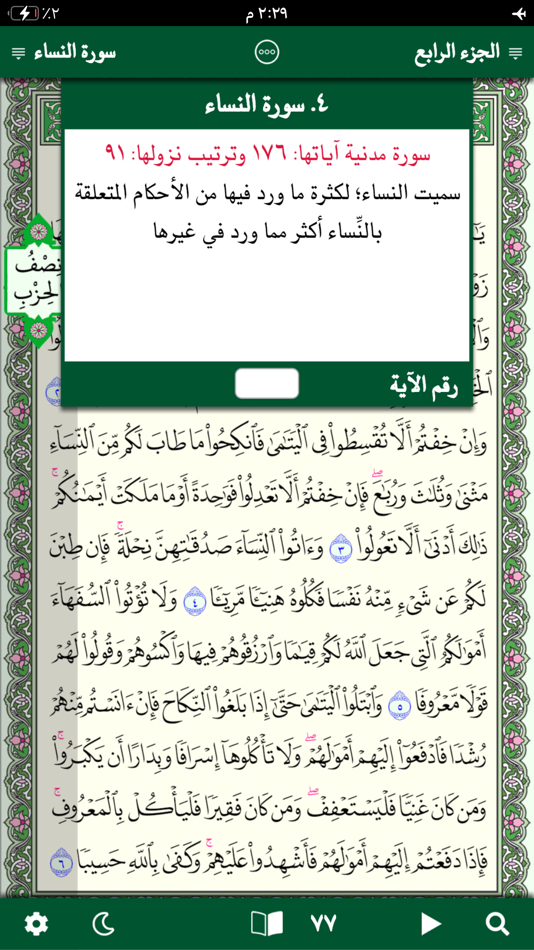 ٪٢
٢:٢٩ م
الجزء الرابع
سورة النساء
٤. سورة النساء
سورة مدنية آياتها: ١٧٦ وترتيب نزولها: ٩١
سميت النساء؛ لكثرة ما ورد فيها من الأحكام المتعلقة
بالنِّساء أكثر مما ورد في غيرها
رقم الآية
نِصْفُ
الحِزْبِ
٢
وَإِنْ خِفْتُمْ أَلَّا تُقْسِطُوا۟ فِى ٱلْيَتَـٰمَىٰ فَٱنكِحُوا۟ مَا طَابَ لَكُم مِّنَ ٱلنِّسَآءِ
مَثْنَىٰ وَثُلَـٰثَ وَرُبَـٰعَ ۖ فَإِنْ خِفْتُمْ أَلَّا تَعْدِلُوا۟ فَوَٰحِدَةً أَوْ مَا مَلَكَتْ أَيْمَـٰنُكُمْ ۚ
ذَٰلِكَ أَدْنَىٰٓ أَلَّا تَعُولُوا۟ ٣ وَءَاتُوا۟ ٱلنِّسَآءَ صَدُقَـٰتِهِنَّ نِحْلَةً ۚ فَإِن طِبْنَ
لَكُمْ عَن شَىْءٍ مِّنْهُ نَفْسًا فَكُلُوهُ هَنِيٓـًٔا مَّرِيٓـًٔا ٤ وَلَا تُؤْتُوا۟ ٱلسُّفَهَآءَ
أَمْوَٰلَكُمُ ٱلَّتِى جَعَلَ ٱللَّهُ لَكُمْ قِيَـٰمًا وَٱرْزُقُوهُمْ فِيهَا وَٱكْسُوهُمْ وَقُولُوا۟ لَهُمْ
قَوْلًا مَّعْرُوفًا ٥ وَٱبْتَلُوا۟ ٱلْيَتَـٰمَىٰ حَتَّىٰٓ إِذَا بَلَغُوا۟ ٱلنِّكَاحَ فَإِنْ ءَانَسْتُم مِّنْهُمْ
رُشْدًا فَٱدْفَعُوٓا۟ إِلَيْهِمْ أَمْوَٰلَهُمْ ۖ وَلَا تَأْكُلُوهَآ إِسْرَافًا وَبِدَارًا أَن يَكْبَرُوا۟ ۚ
وَمَن كَانَ غَنِيًّا فَلْيَسْتَعْفِفْ ۖ وَمَن كَانَ فَقِيرًا فَلْيَأْكُلْ بِٱلْمَعْرُوفِ ۚ
فَإِذَا دَفَعْتُمْ إِلَيْهِمْ أَمْوَٰلَهُمْ فَأَشْهِدُوا۟ عَلَيْهِمْ ۚ وَكَفَىٰ بِٱللَّهِ حَسِيبًا ٦
٧٧